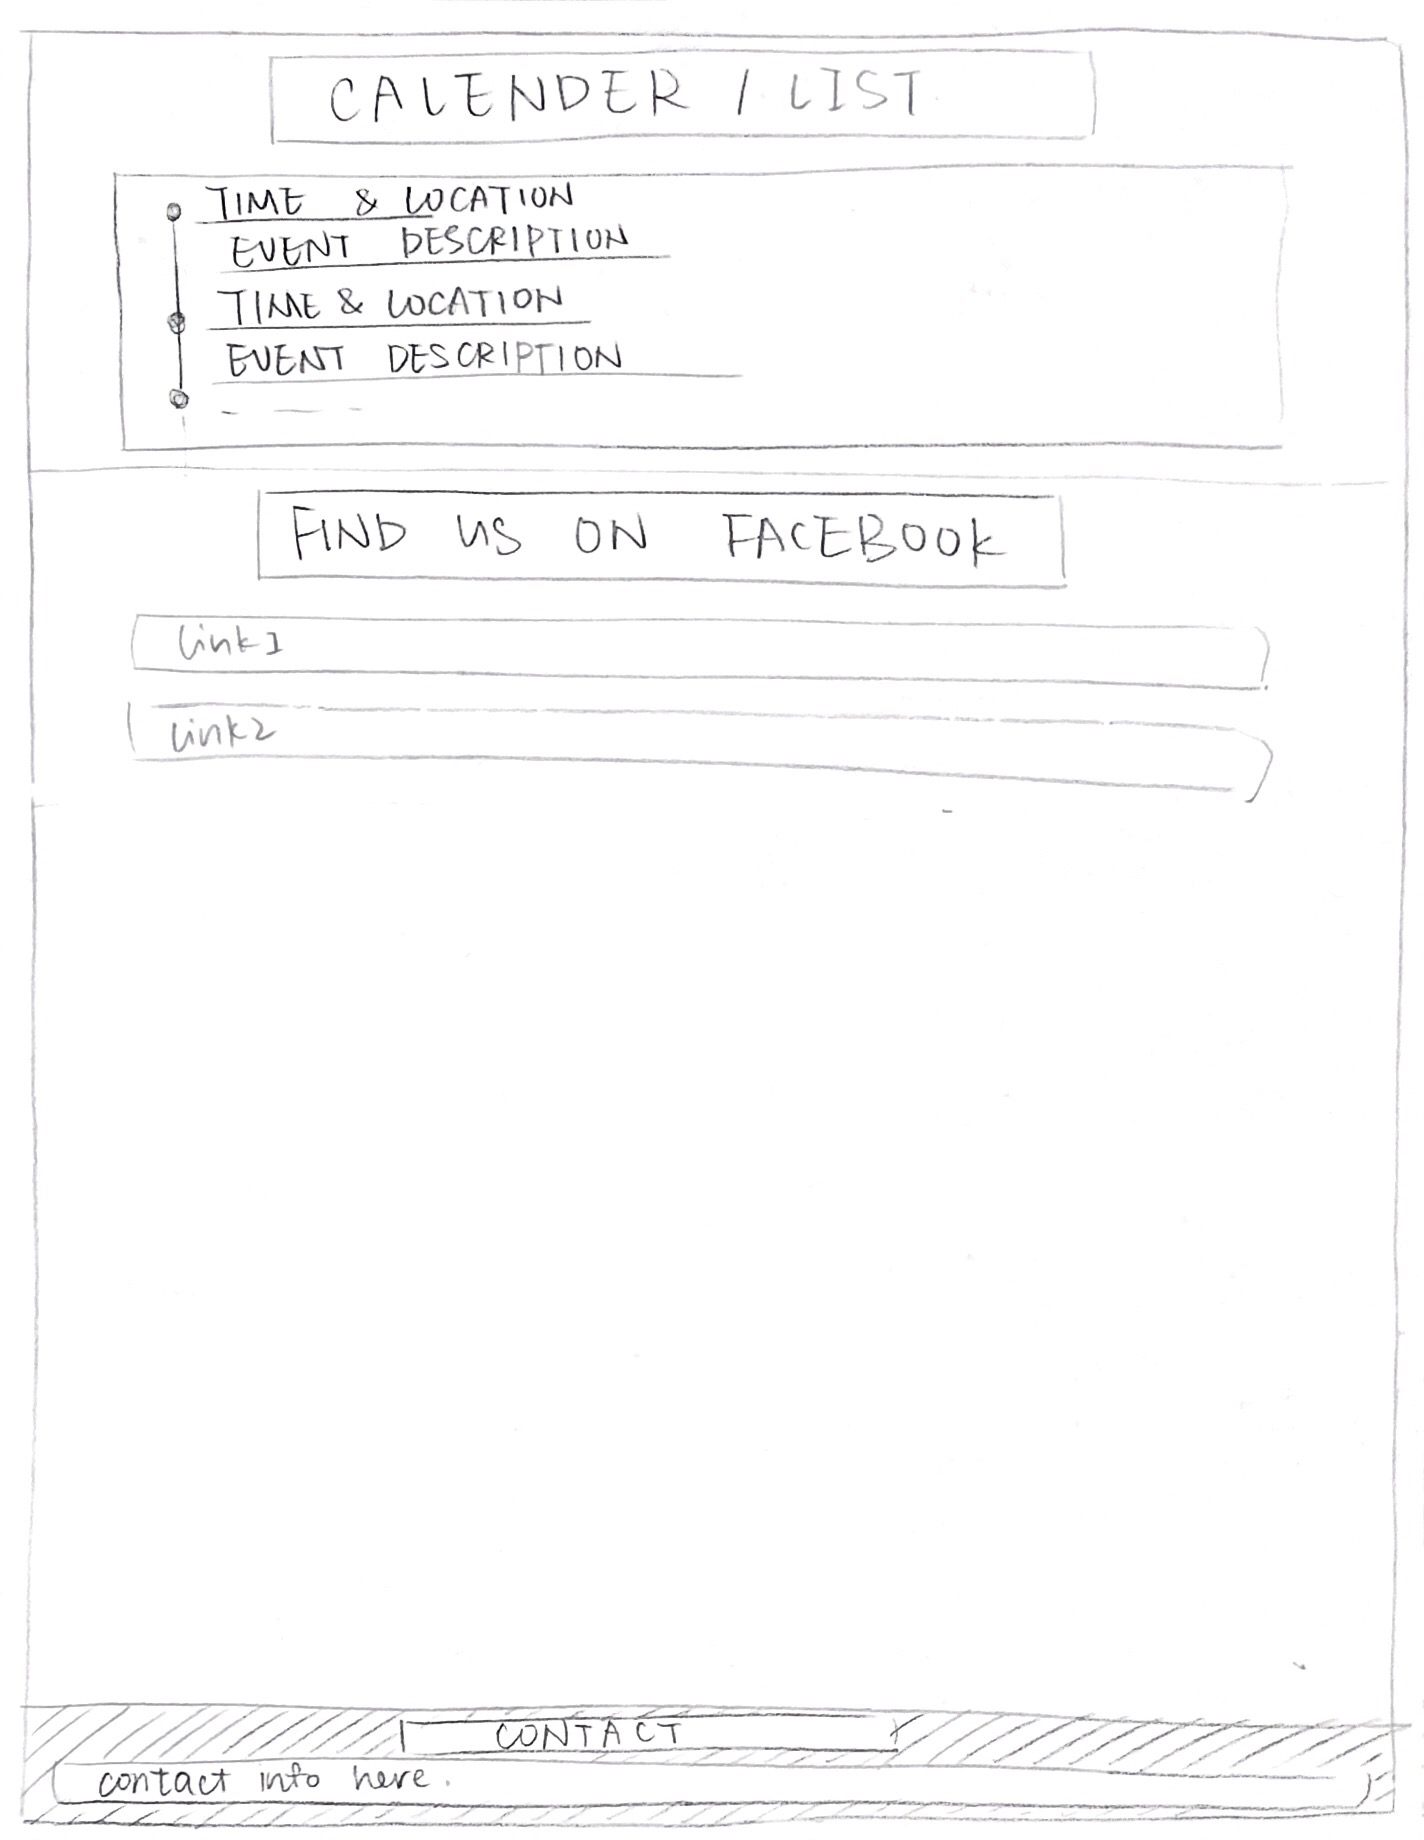 CALENDER / LIST
TIME & LOCATION
EVENT DESCRIPTION
TIME & LOCATION
EVENT DESCRIPTION
FIND US ON FACEBOOK
link1
link2
CONTACT
contact info here.